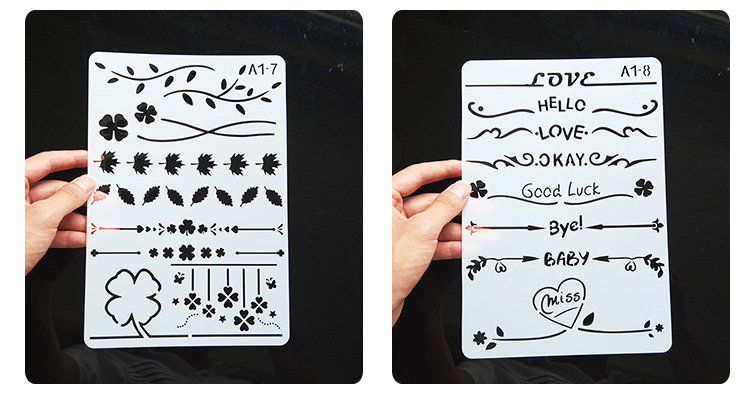 A1-7
LOVE A1-8
HELLO
·LOVE·
.OKAY.
Good Luck
Bye!
BABY
miss